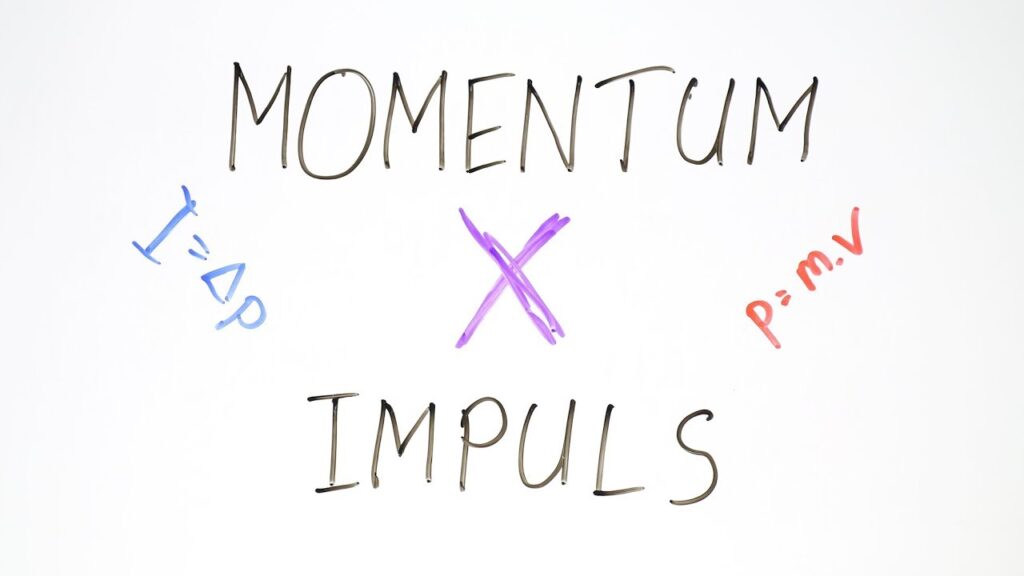 MOMENTUM
I = Δp
X
p = m.v
IMPULS